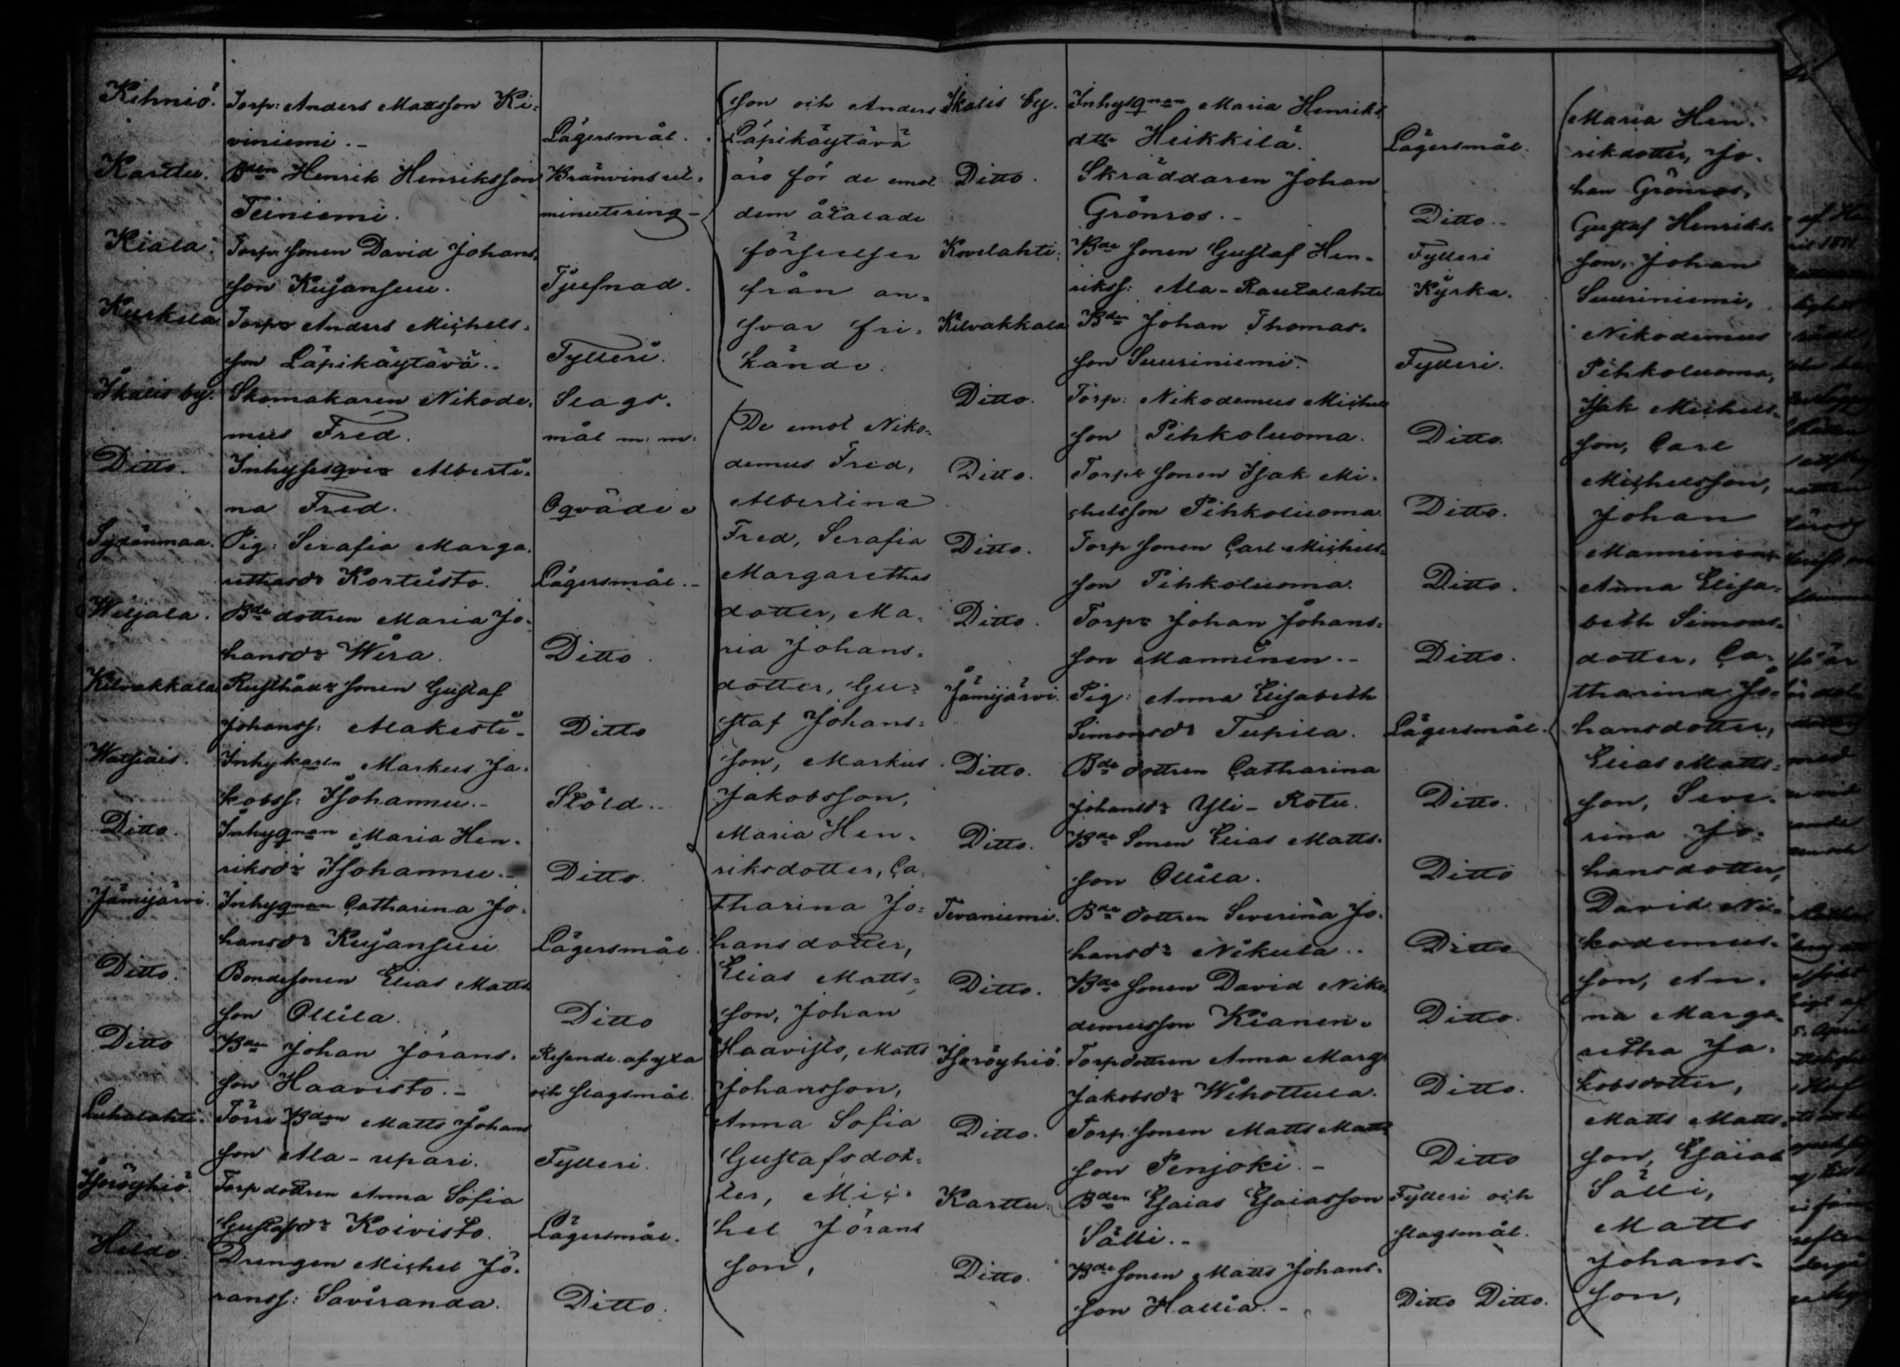 Kihniö. Torp: Anders Mattsson Ki-
viniemi. Lägersmål.
Karttu. Bden Henrik Henriksson Bränvinsut-
Teiniemi. minutering
Kiala. Torp: sonen David Johans-
son Kujansuu. Tjufnad.
Kurkela Torpr Anders Michels-
son Läpikäytävä. Fylleri.
Ikalis by. Skomakaren Nikode-
mus Fred. Slags-
mål m. m.
Ditto. Inhysesqvin Alberti-
na Fred. Oqväde
Sydänmaa. Pig: Serafia Marga-
rethasdr Kortisto. Lägersmål.
Wiljala. Bde dottren Maria Jo-
hansdr Wira. Ditto
Kilvakkala Rusthåls sonen Gustaf
Johanss: Alakesti Ditto
Inhyskarln Markus Ja-
kobss: Isohannu. Stöld.
Ditto. Inhyqnan Maria Hen-
riksdr Isohannu. Ditto.
Jämijärvi. Inhyqnan Catharina Jo-
hansdr Kujansuu Lägersmål.
Ditto. Bondesonen Elias Matts
son Ollila. Ditto
Ditto Bden Johan Jörans-
son Haavisto. och slagsmål.
Luhalahti. Förre Bden Matts Johans
son Ala-upari. Fylleri.
Torp dottren Anna Sofia
Gustafsdr Koivisto. Lägersmål.
Heldo. Drengen Michel Jö-
ranss: Saviranda. Ditto.
son och Anders
Läpikäytävä
äro för de emot
dem åtalade
förseelser
från an-
svar fri-
kända.
De emot Niko-
demus Fred,
Albertina
Fred, Serafia
Margarethas
dotter, Ma-
ria Johans-
dotter, Gu-
staf Johans-
son, Markus
Jakobsson,
Maria Hen-
riksdotter, Ca
tharina Jo-
hansdotter,
Elias Matts-
son, Johan
Haavisto, Matts
Johansson,
Anna Sofia
Gustafsdot-
ter, Mic-
hel Jörans
son,
Ikalis by. Inhysqnan Maria Henriks
dtr Heikkilä. Lägersmål.
Ditto. Skräddaren Johan
Grönros. Ditto.
Kovelahti. Bde sonen Gustaf Hen- Fylleri
rikss: Ala-Rautalahti Kyrka.
Kilvakkala Bdn Johan Thomas-
son Suuriniemi. Fylleri.
Ditto. Torp: Nikodemus Michels
son Pihkoluoma. Ditto.
Ditto. Torpr sonen Isak Mi-
chelsson Pihkoluoma. Ditto.
Ditto. Torp sonen Carl Michels-
son Pihkoluoma. Ditto.
Ditto. Torpr Johan Johans-
son Manninen. Ditto.
Jämijärvi. Pig: Anna Elisabeth
Simonsdr Tupila. Lägersmål.
Ditto. Bde dottren Catharina
Johansdr Yli-Rotu. Ditto.
Ditto. Bde Sonen Elias Matts-
son Ollila. Ditto
Tevaniemi. Bde dottren Severina Jo-
hansdr Nikula. Ditto
Ditto. Bde sonen David Niko
demusson Kianen. Ditto.
Torpdottren Anna Marg:
Jakobsdr Wihottula. Ditto.
Ditto. Torp. sonen Matts Matts
son Penjoki. Ditto
Karttu. Bden Esaias Esaiasson Fylleri och
Sälli. slagsmål.
Ditto. Bde sonen Matts Johans-
son Hallia. Ditto Ditto.
Maria Hen-
riksdotter, Jo-
han Grönros,
Gustaf Henriks-
son, Johan
Suuriniemi,
Nikodemus
Pihkoluoma,
Isak Michels-
son, Carl
Michelsson,
Johan
Manninen,
Anna Elisa-
beth Simons-
dotter, Ca-
tharina Jo-
hansdotter,
Elias Matts-
son, Seve-
rina Jo-
hansdotter,
David Ni-
kodemus-
son, An-
na Marga-
retha Ja-
kobsdotter,
Matts Matts-
son, Esaias
Sälli,
Matts
Johans-
son,